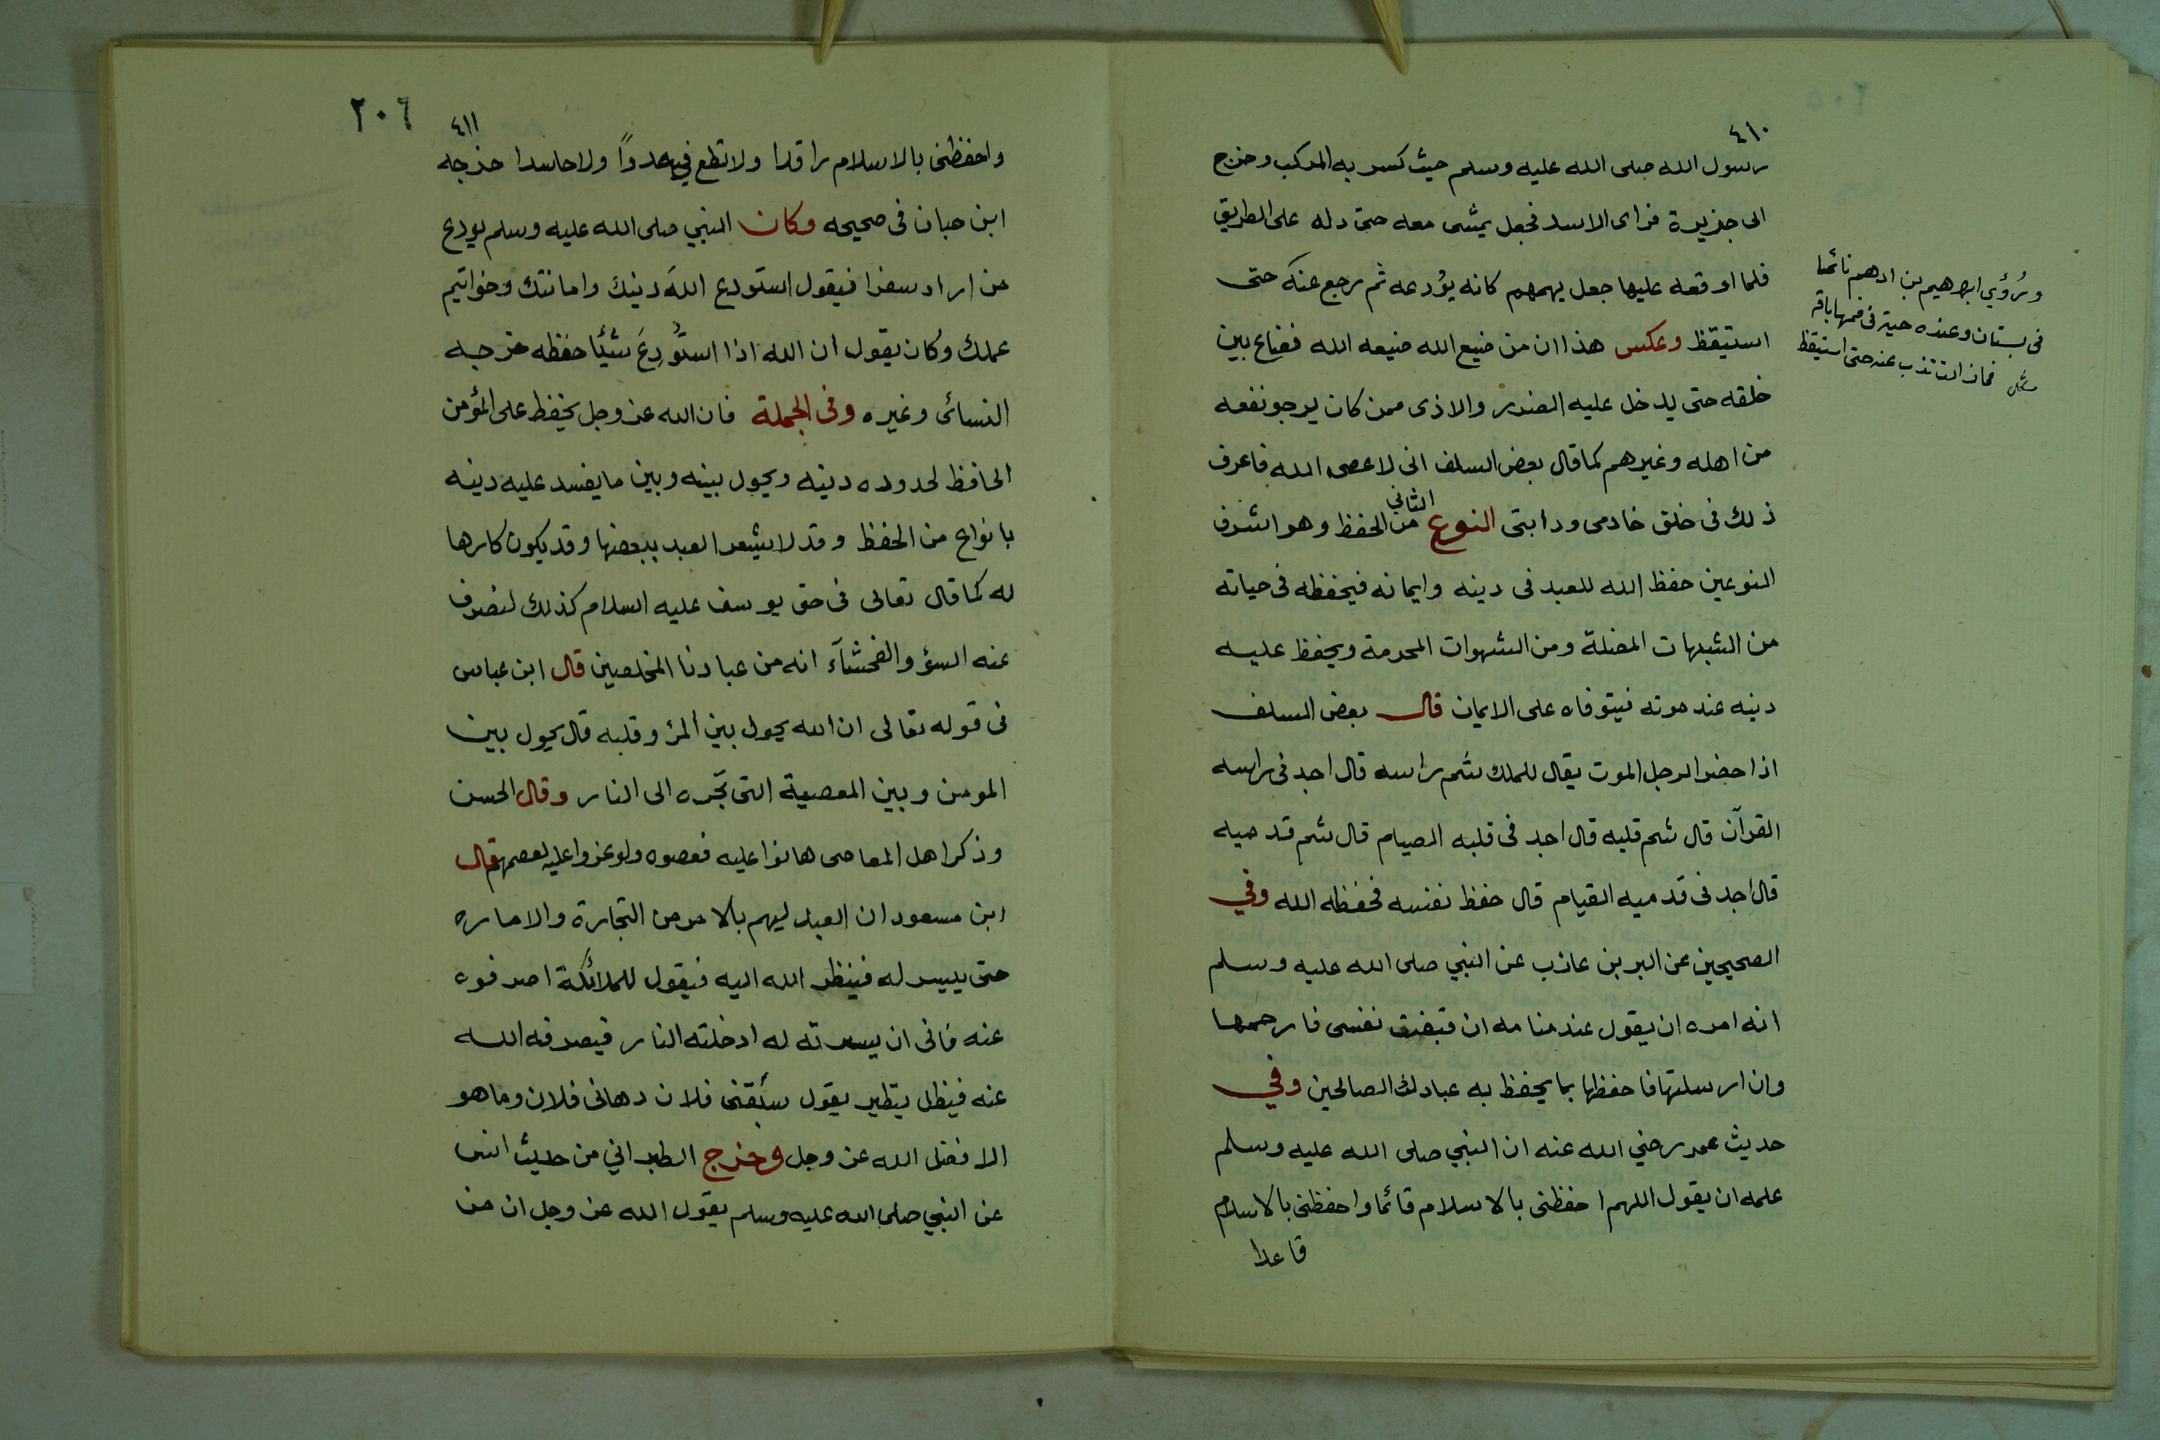 ٤١٠
رسول الله صلى الله عليه وسلم حيث كسر به المركب وخرج
الى جزيرة فراى الاسد فجعل يمشى معه حتى دله على الطريق
فلما اوقعه عليها جعل يهمهم كانه يؤدعه ثم رجع عنه حتى
استيقظ وعكس هذا ان من ضيع الله ضيعه الله فضاع بين
خلقه حتى يدخل عليه الضرر والاذى ممن كان يرجو نفعه
من اهله وغيرهم كما قال بعض السلف انى لاعصى الله فاعرف
ذلك فى خلق خادمى ودابتى النوع الثاني من الحفظ وهو اشرف
النوعين حفظ الله للعبد فى دينه وايمانه فيحفظه فى حياته
من الشبهات المضلة ومن الشهوات المحرمة ويحفظ عليه
دينه عند موته فيتوفاه على الايمان قال بعض السلف
اذا حضر الرجل الموت يقال للملك شم راسه قال اجد فى راسه
القرآن قال شم قلبه قال اجد فى قلبه الصيام قال شم قدميه
قال اجد فى قدميه القيام قال حفظ نفسه فحفظه الله وفي
الصحيحين عن البر بن عازب عن النبي صلى الله عليه وسلم
انه امره ان يقول عند منامه ان قبضت نفسى فارحمها
وان ارسلتها فاحفظها بما يحفظ به عبادك الصالحين وفي
حديث عمر رضي الله عنه ان النبي صلى الله عليه وسلم
علمه ان يقول اللهم احفظنى بالاسلام قائما واحفظنى بالاسلام
قاعدا
ورُؤي ابراهيم بن ادهم نائما
فى بستان وعنده حية فى فمها باقة
فما زالت تذب عنه حتى استيقظ
٢٠٦
٤١١
واحفظنى بالاسلام راقدا ولا تطع في عدوًا ولا حاسدا خرجه
ابن حبان فى صحيحه وكان النبي صلى الله عليه وسلم يودع
من اراد سفرا فيقول استودع اللهَ دينك وامانتك وخواتيم
عملك وكان يقول ان الله اذا استُودِعَ شئيا حفظه خرجه
النسائى وغيره وفى الجملة فان الله عز وجل يحفظ على المؤمن
الحافظ لحدوده دينه ويحول بينه وبين ما يفسد عليه دينه
بانواع من الحفظ وقد لا يشعر العبد ببعضها وقد يكون كارها
له كما قال تعالى فى حق يوسف عليه السلام كذلك لنصرف
عنه السؤ والفحشآء انه من عبادنا المخلصين قال ابن عباس
فى قوله تعالى ان الله يحول بين المرٔ وقلبه قال يحول بين
المومن وبين المعصية التى تجره الى النار وقال الحسن
وذكر اهل المعاصى هانوا عليه فعصوه ولو عزوا عليه لعصمهم قال
ابن مسعود ان العبد ليهم بالامر من التجارة والاماره
حتى ييسر له فينظر الله اليه فيقول للملائكة اصرفوه
عنه فانى ان يسرته له ادخلته النار فيصرفه الله
عنه فيظل يتطير يقول سبقنى فلان دهانى فلان وما هو
الا فضل الله عز وجل وخرج الطبراني من حديث انس
عن النبي صلى الله عليه وسلم يقول الله عز وجل ان من